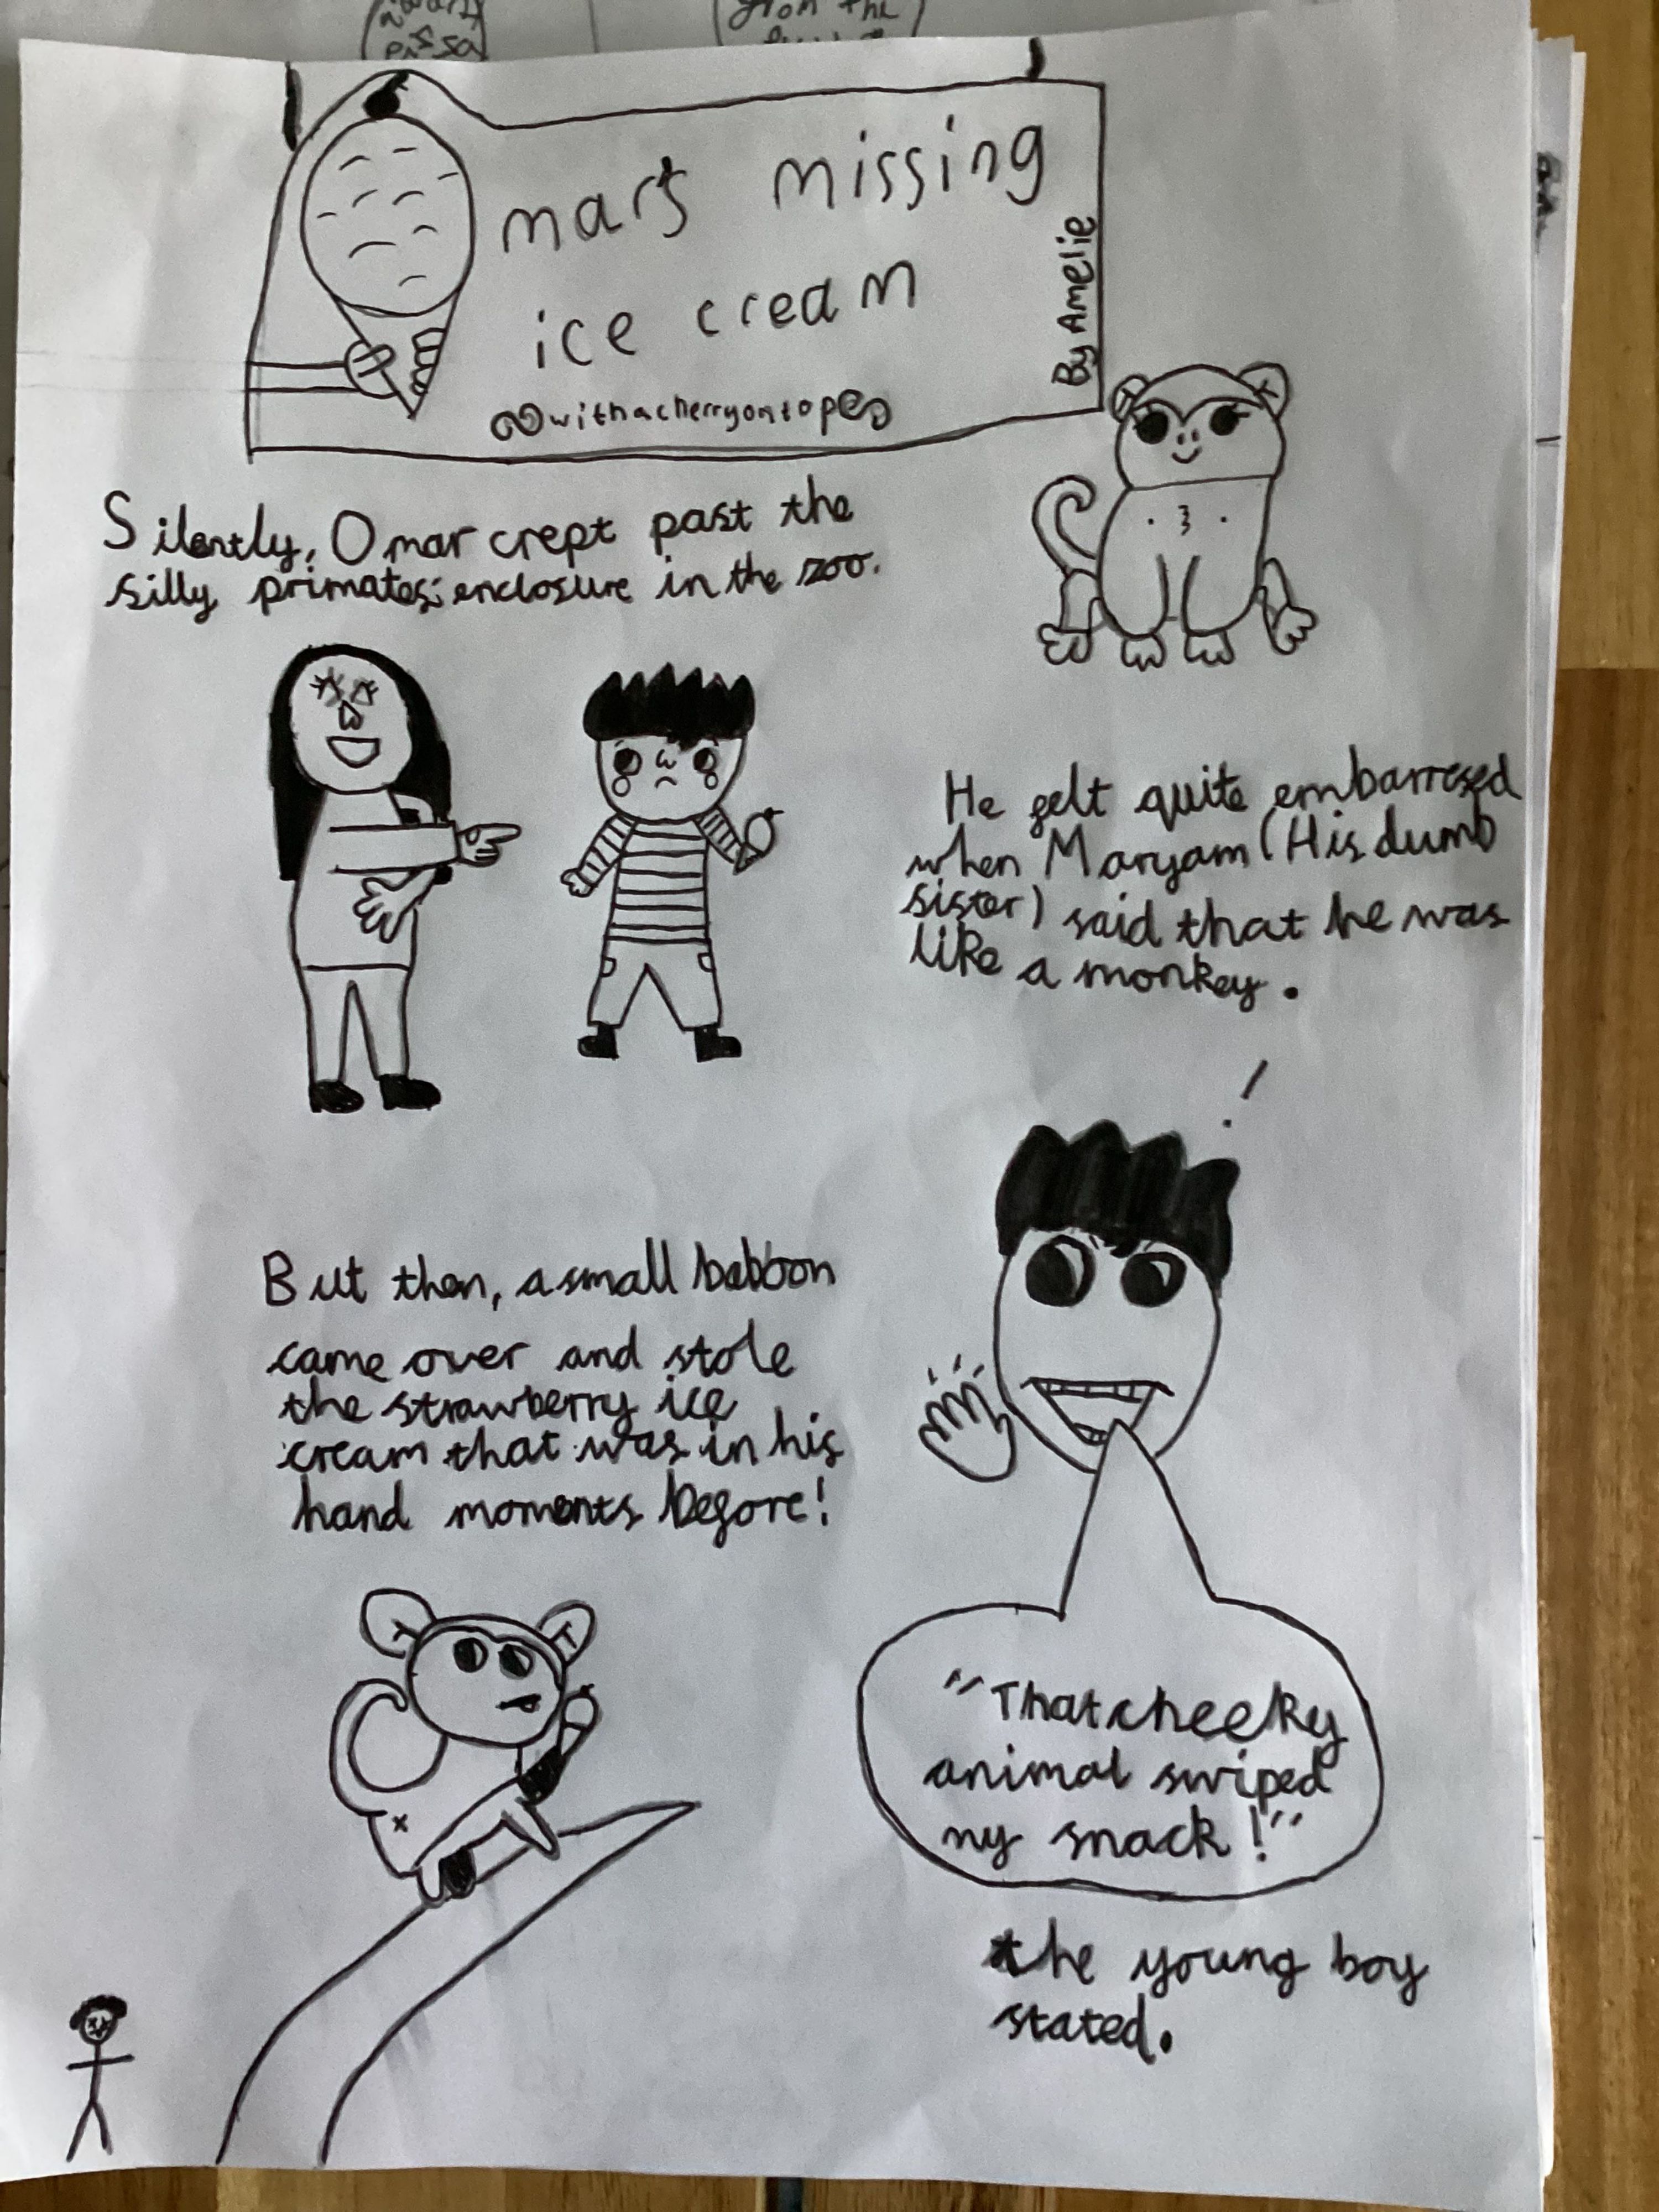 mar's missing
ice cream
withacherryontop
By Amelie
Silently, Omar crept past the
silly primates' enclosure in the zoo.
He felt quite embarresed
when Maryam (His dumb
sister) said that he was
like a monkey.
!
But then, a small baboon
came over and stole
the strawberry ice
cream that was in his
hand moments before!
"That cheeky
animal swiped
my snack!"
the young boy
stated.
from the